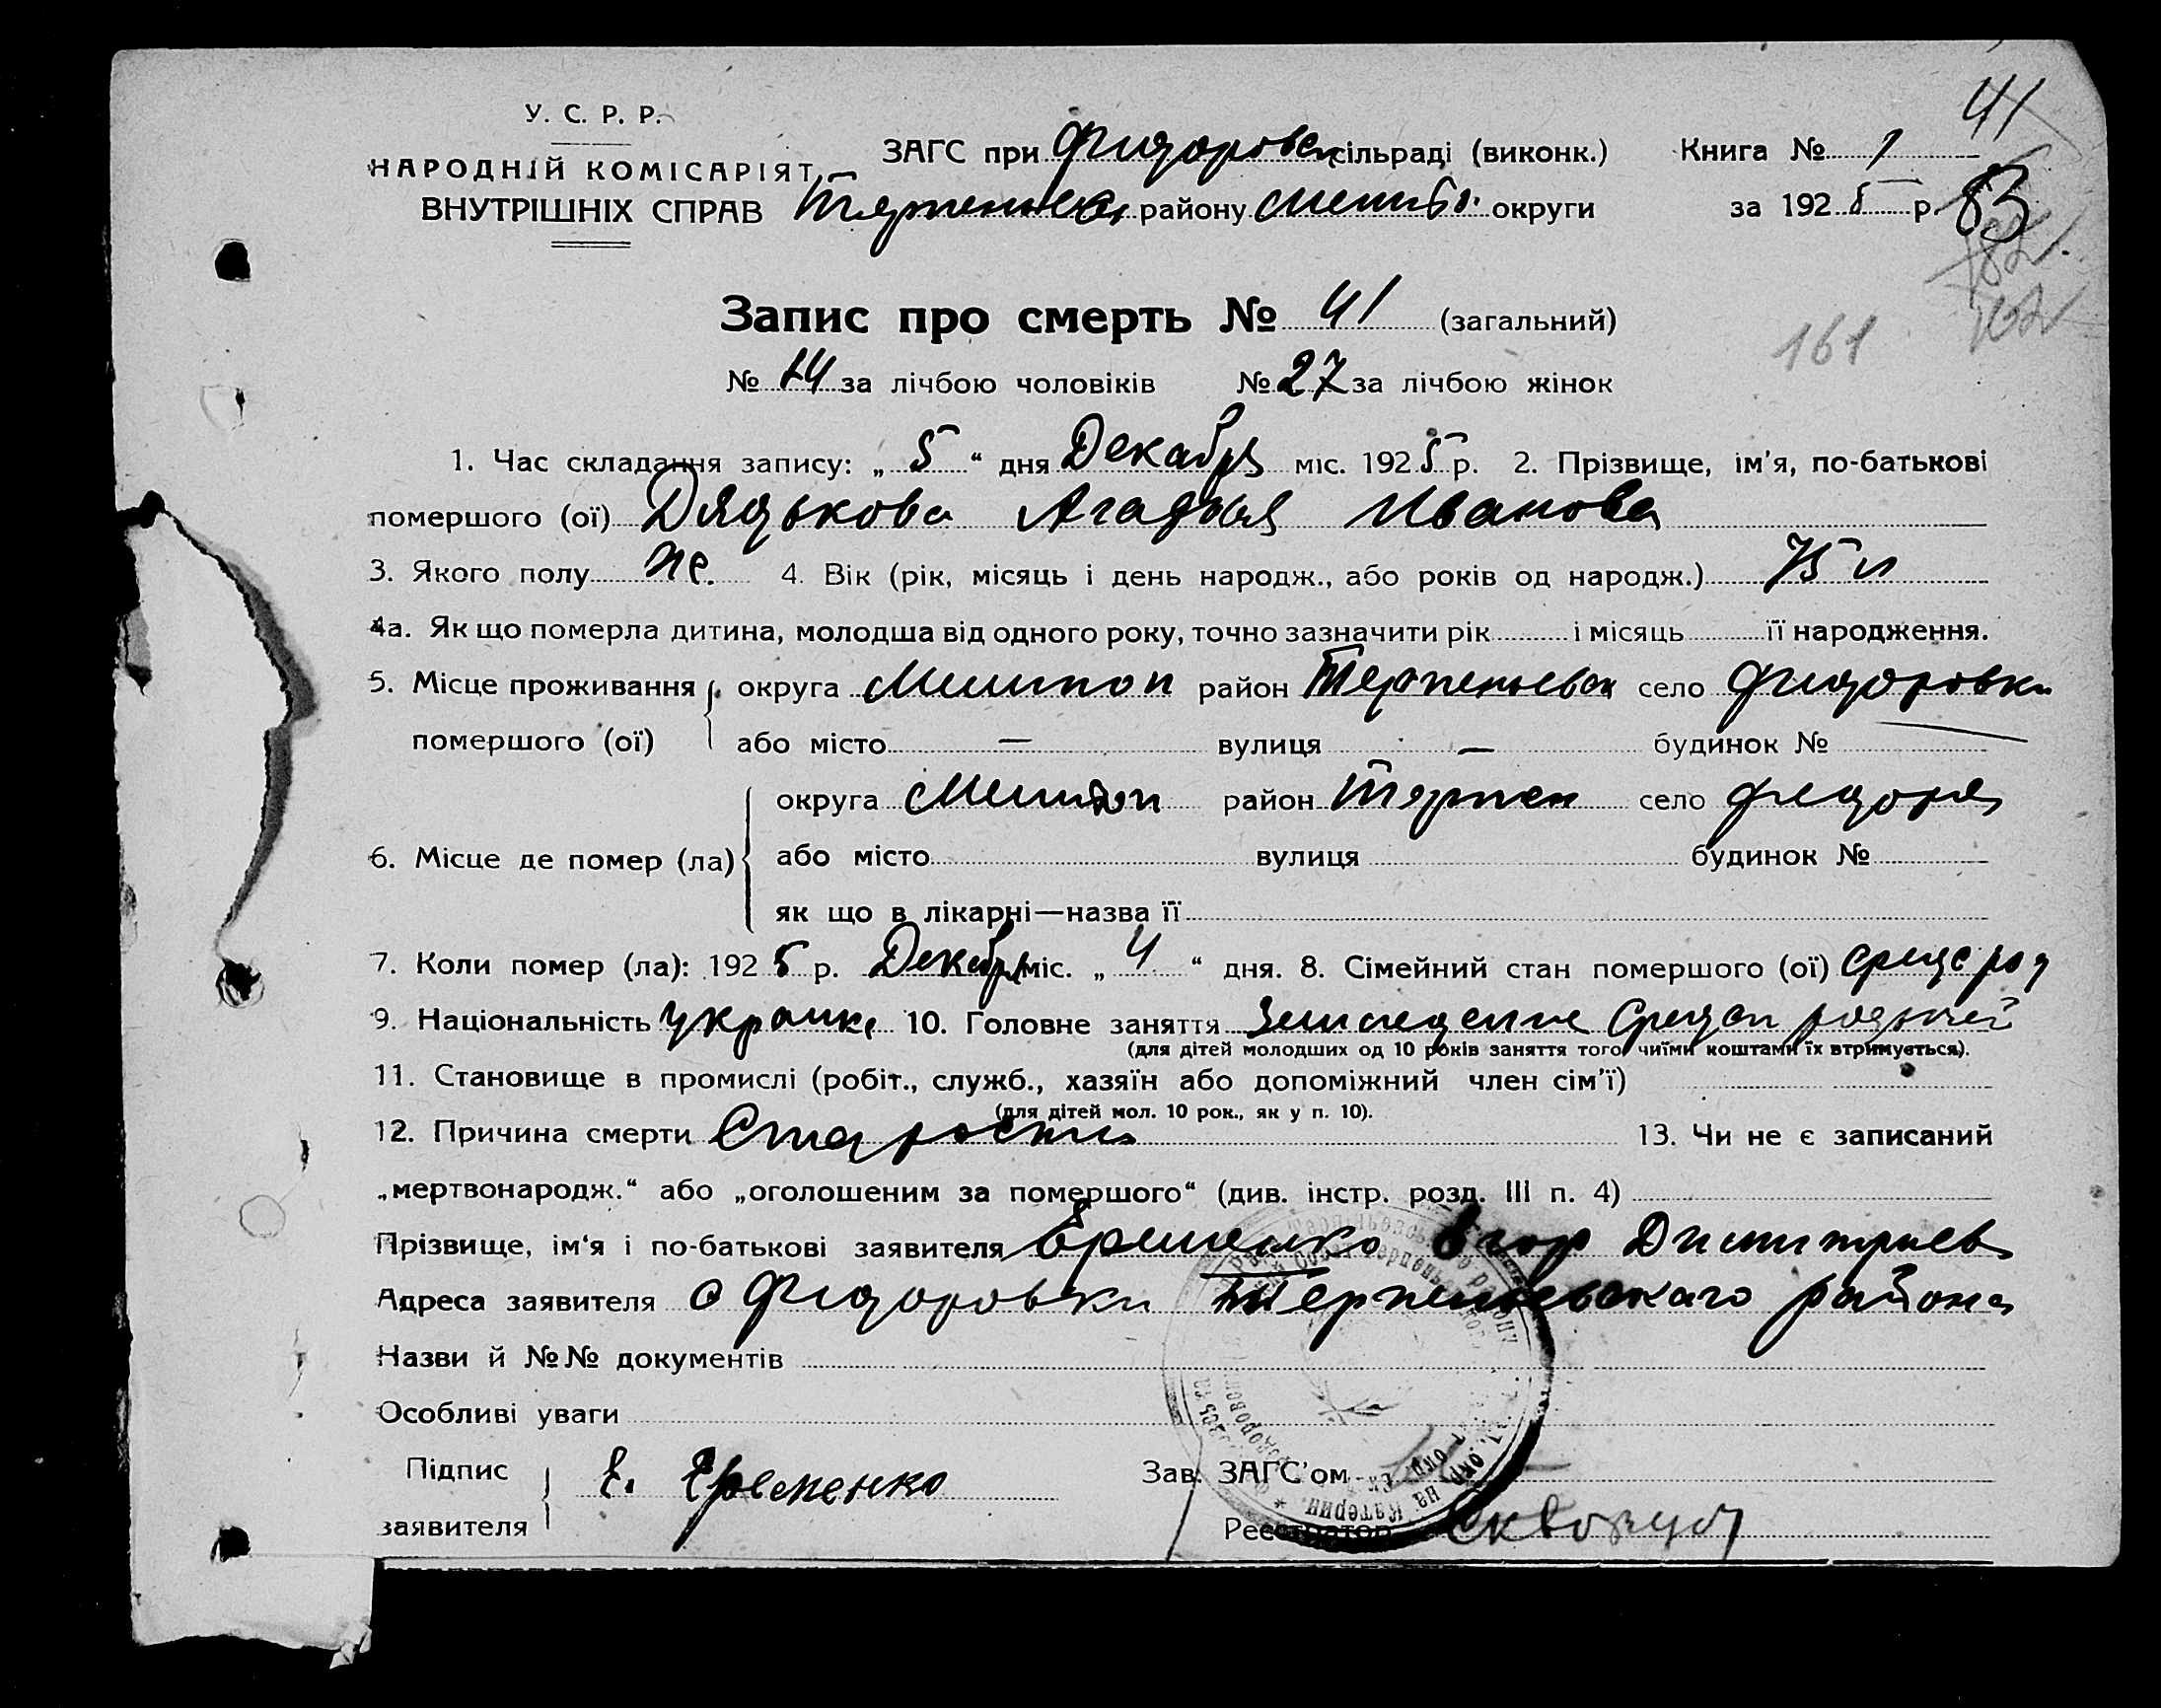 У. С. Р. Р.
НАРОДНІЙ КОМІСАРІЯТ
ВНУТРІШНІХ СПРАВ
ЗАГС при сільраді (виконк.)
району округи
Книга № 1
за 1925 р.
41
83
161
Запис про смерть № 41 (загальний)
№ 14 за лічбою чоловіків № 27 за лічбою жінок
1. Час складання запису: „ 5 “ дня Декабря міс. 1925 р. 2. Прізвище, ім'я, по-батькові
помершого (ої) Дядькова Агафья Иванова
3. Якого полу 4. Вік (рік, місяць і день народж., або років од народж.) 75 л
4а. Як що померла дитина, молодша від одного року, точно зазначити рік і місяць її народження.
5. Місце проживання округа Мелитоп район село Фидоровки
помершого (ої) або місто — вулиця — будинок №
округа Мелитоп район Терпен село
6. Місце де помер (ла) або місто вулиця будинок №
як що в лікарні—назва її
7. Коли помер (ла): 1925 р. міс. „ 4 “ дня. 8. Сімейний стан помершого (ої)
9. Національність 10. Головне заняття
(для дітей молодших од 10 років заняття того, чиїми коштами їх втримується).
11. Становище в промислі (робіт., служб., хазяїн або допоміжний член сім'ї)
(для дітей мол. 10 рок., як у п. 10).
12. Причина смерти Старости 13. Чи не є записаний
„мертвонародж.“ або „оголошеним за помершого“ (див. інстр. розд. III п. 4)
Прізвище, ім'я і по-батькові заявителя Еременко Егор Димитриев
Адреса заявителя с Фидоровки Терпеньевскаго района
Назви й №№ документів
Особливі уваги
Підпис
заявителя Е. Еременко
Зав. ЗАГС'ом
Реєстратор